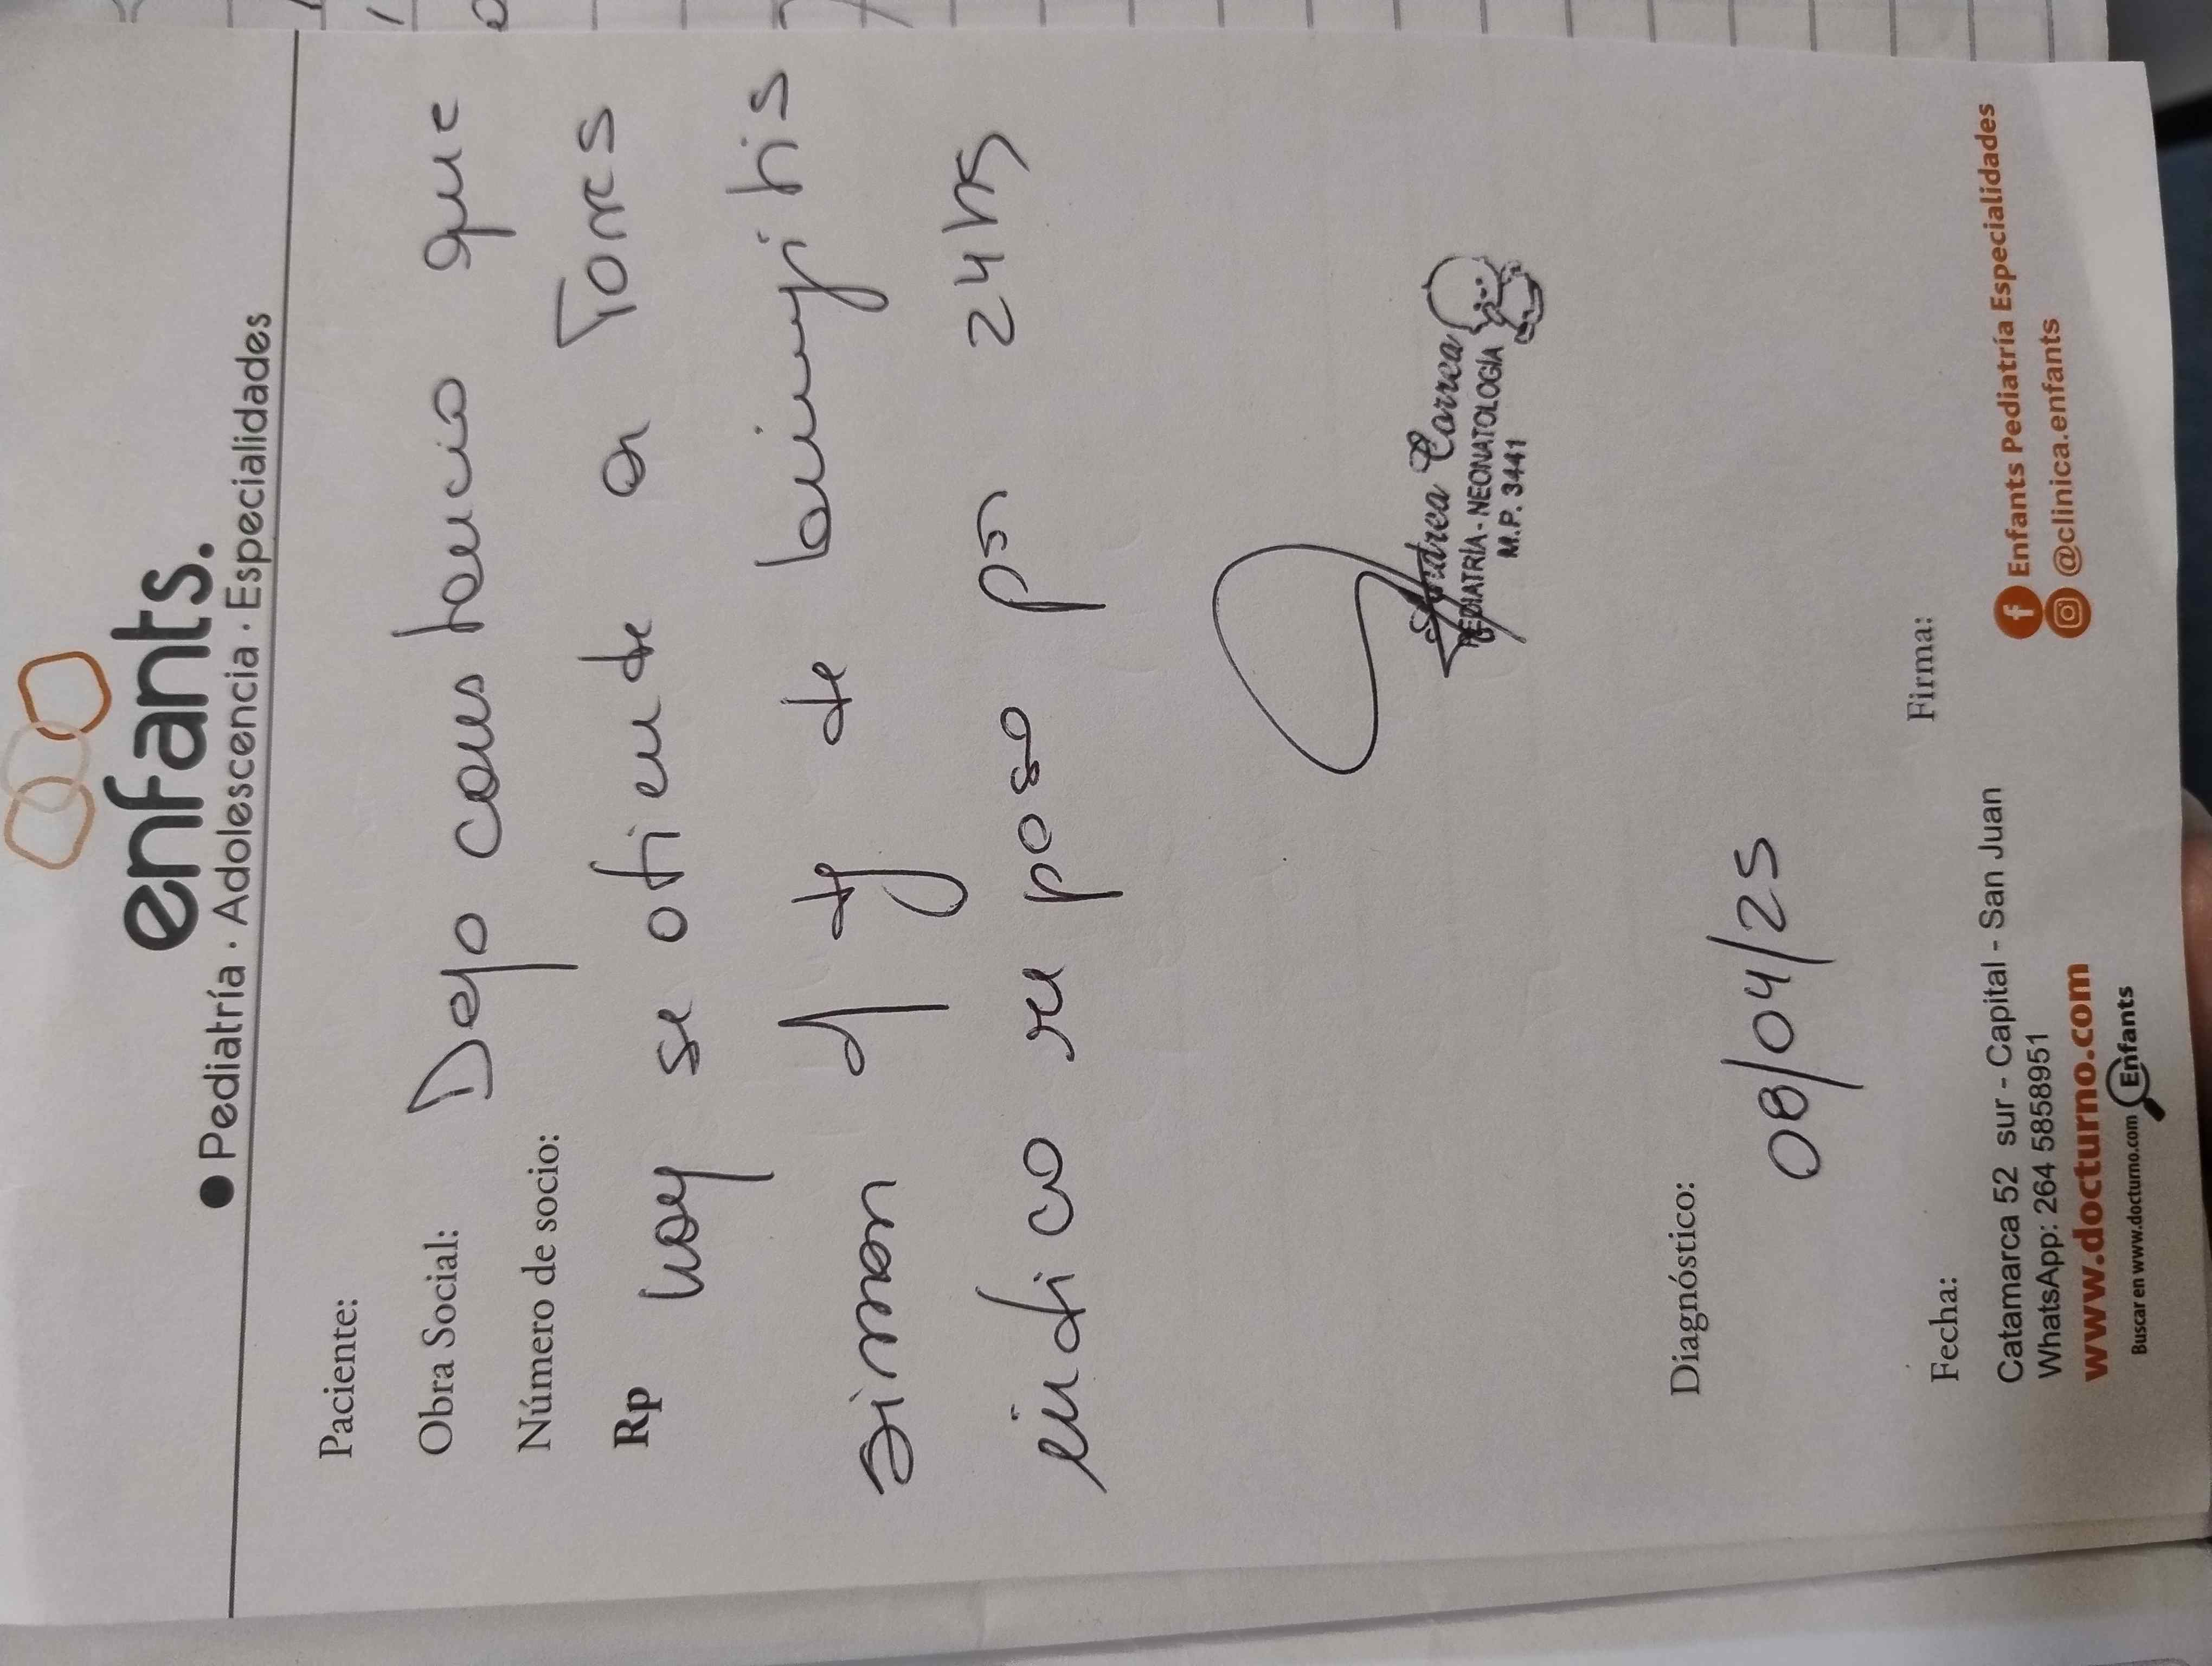 enfants.
Pediatría · Adolescencia · Especialidades
Paciente:
Obra Social:
Dejo constancia que
Número de socio:
Rp hoy se atiende a Torres
Simon de laringitis
indico reposo por 24hs
Andrea Correa
PEDIATRÍA - NEONATOLOGÍA
M.P. 3441
Diagnóstico:
08/04/25
Fecha:
Firma:
Catamarca 52 sur - Capital - San Juan
WhatsApp: 264 5858951
www.docturno.com
Buscar en www.docturno.com Enfants
Enfants Pediatría Especialidades
@clinica.enfants